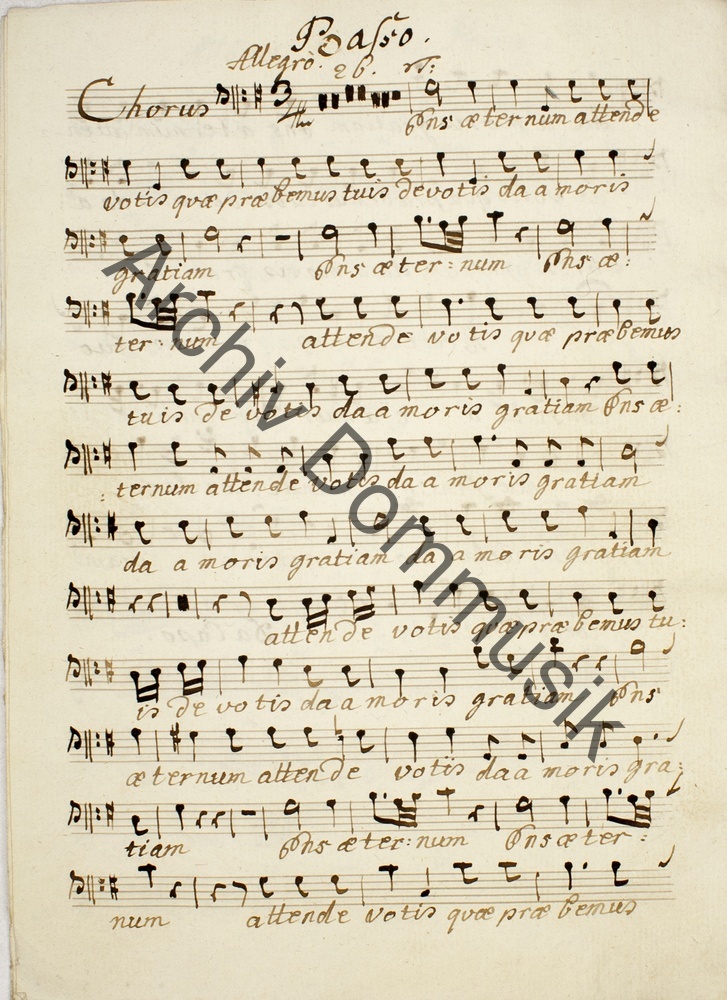 Basso.
Allegro. 26. T:
Chorus 3/4 Ens æternum attende
votis quæ præbemus tuis devotis da amoris
gratiam Ens æter: num Ens æ:
ter: num attende votis quæ præbemus
tuis devotis da amoris gratiam Ens æ:
:ternum attende votis da amoris gratiam
da amoris gratiam da amoris gratiam
attende votis quæ præbemus tu:
is devotis da amoris gratiam Ens
æternum attende votis da amoris gra:
tiam Ens æter: num Ens æter:
num attende votis quæ præbemus
Archiv Dommusik